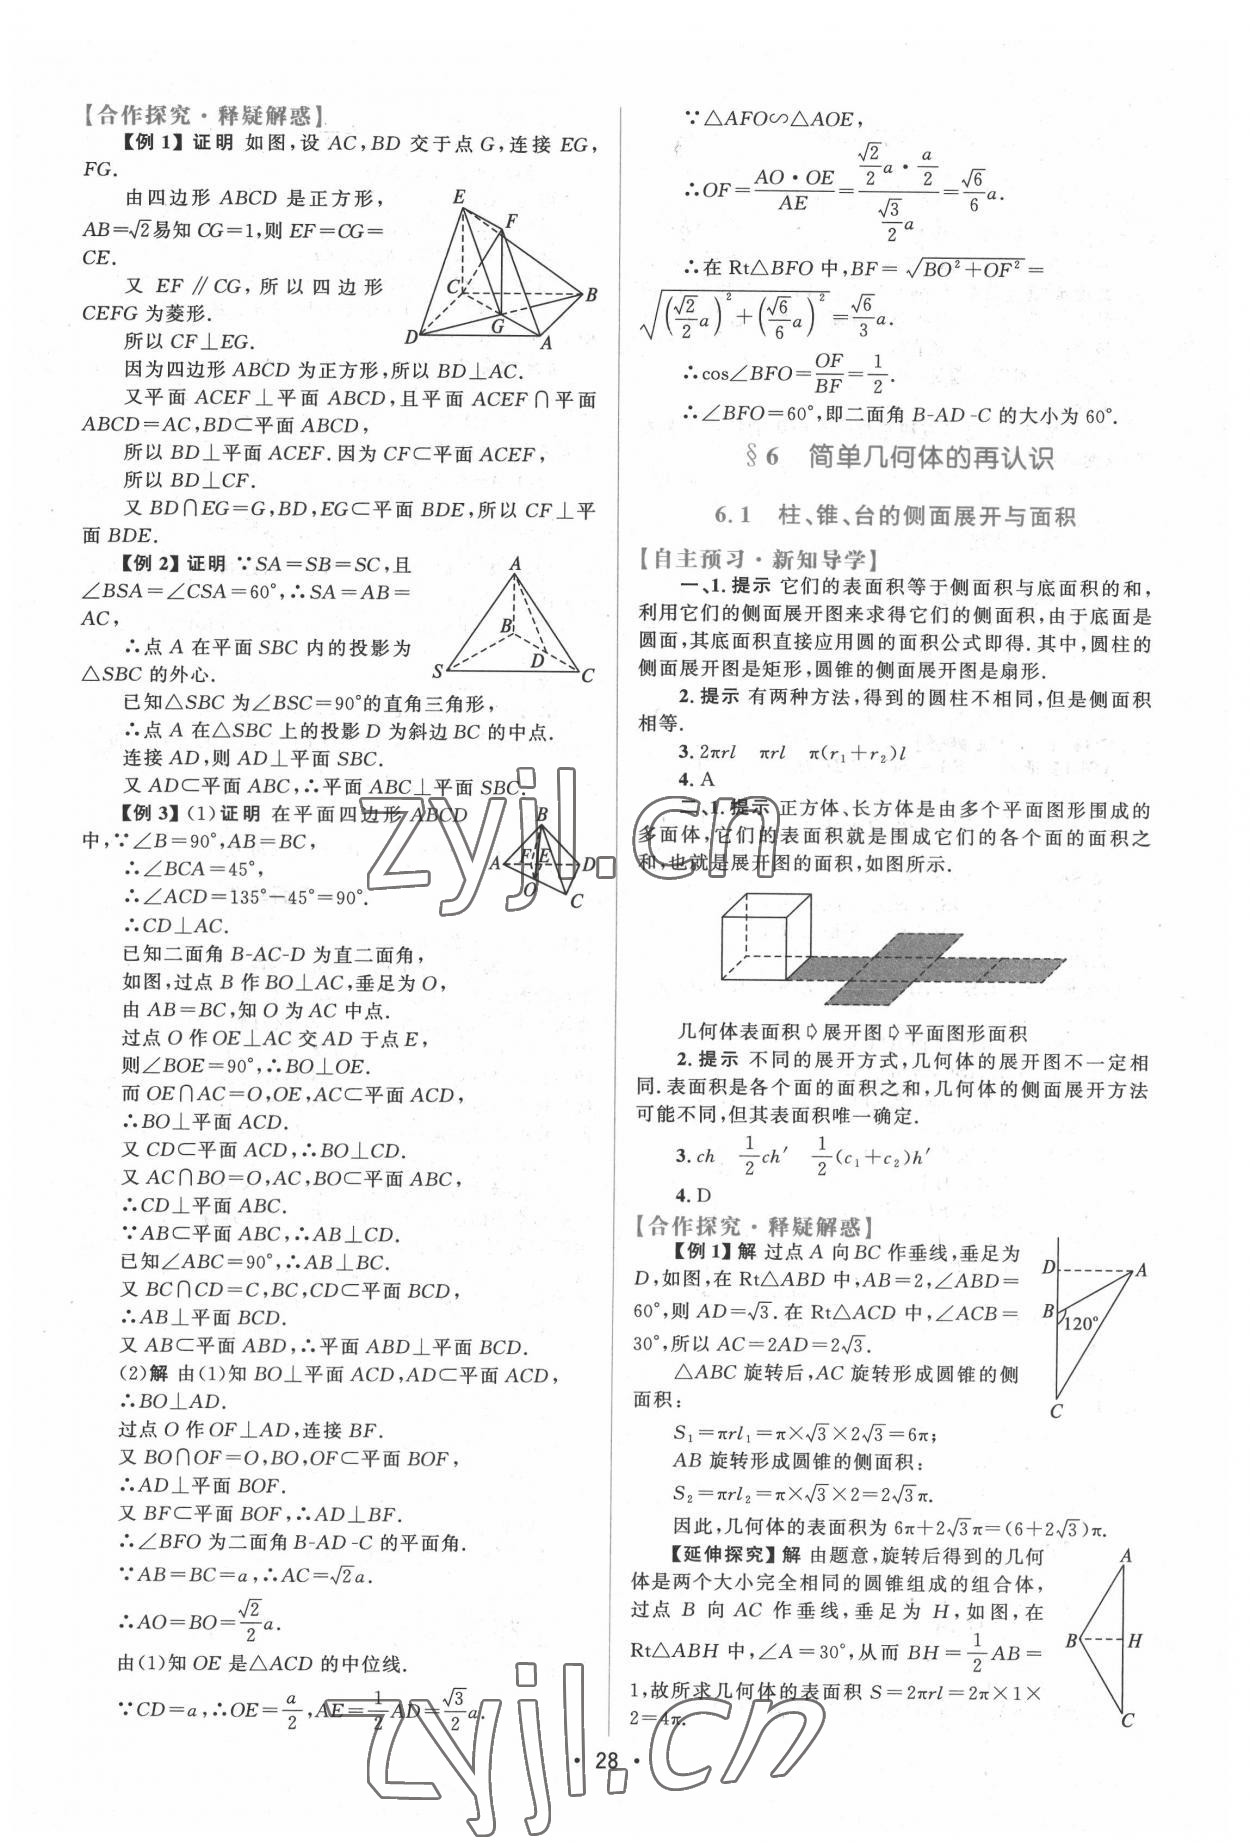 【合作探究·释疑解惑】
【例1】证明 如图,设 AC,BD 交于点 G,连接 EG,
FG.
由四边形 ABCD 是正方形,
AB=√2易知 CG=1,则 EF=CG=
CE.
又 EF∥CG,所以四边形
CEFG 为菱形.
所以 CF⊥EG.
E
F
C
B
G
D
A
因为四边形 ABCD 为正方形,所以 BD⊥AC.
又平面 ACEF⊥平面 ABCD,且平面 ACEF∩平面
ABCD=AC,BD⊂平面 ABCD,
所以 BD⊥平面 ACEF.因为 CF⊂平面 ACEF,
所以 BD⊥CF.
又 BD∩EG=G,BD,EG⊂平面 BDE,所以 CF⊥平
面 BDE.
【例2】证明 ∵SA=SB=SC,且
∠BSA=∠CSA=60°,∴SA=AB=
AC,
∴点 A 在平面 SBC 内的投影为
△SBC 的外心.
A
B
D
S
C
已知△SBC 为∠BSC=90°的直角三角形,
∴点 A 在△SBC 上的投影 D 为斜边 BC 的中点.
连接 AD,则 AD⊥平面 SBC.
又 AD⊂平面 ABC,∴平面 ABC⊥平面 SBC.
【例3】(1)证明 在平面四边形 ABCD
中,∵∠B=90°,AB=BC,
∴∠BCA=45°,
∴∠ACD=135°−45°=90°.
∴CD⊥AC.
B
A
F
E
D
O
C
已知二面角 B-AC-D 为直二面角,
如图,过点 B 作 BO⊥AC,垂足为 O,
由 AB=BC,知 O 为 AC 中点.
过点 O 作 OE⊥AC 交 AD 于点 E,
则∠BOE=90°,∴BO⊥OE.
而 OE∩AC=O,OE,AC⊂平面 ACD,
∴BO⊥平面 ACD.
又 CD⊂平面 ACD,∴BO⊥CD.
又 AC∩BO=O,AC,BO⊂平面 ABC,
∴CD⊥平面 ABC.
∵AB⊂平面 ABC,∴AB⊥CD.
已知∠ABC=90°,∴AB⊥BC.
又 BC∩CD=C,BC,CD⊂平面 BCD,
∴AB⊥平面 BCD.
又 AB⊂平面 ABD,∴平面 ABD⊥平面 BCD.
(2)解 由(1)知 BO⊥平面 ACD,AD⊂平面 ACD,
∴BO⊥AD.
过点 O 作 OF⊥AD,连接 BF.
又 BO∩OF=O,BO,OF⊂平面 BOF,
∴AD⊥平面 BOF.
又 BF⊂平面 BOF,∴AD⊥BF.
∴∠BFO 为二面角 B-AD-C 的平面角.
∵AB=BC=a,∴AC=√2a.
∴AO=BO=√2/2 a.
由(1)知 OE 是△ACD 的中位线.
∵CD=a,∴OE=a/2,AE=1/2 AD=√3/2 a.
∵△AFO∽△AOE,
∴OF=AO·OE/AE=(√2/2 a·a/2)/(√3/2 a)=√6/6 a.
∴在 Rt△BFO 中,BF=√(BO²+OF²)=
√((√2/2 a)²+(√6/6 a)²)=√6/3 a.
∴cos∠BFO=OF/BF=1/2.
∴∠BFO=60°,即二面角 B-AD-C 的大小为 60°.
§6 简单几何体的再认识
6.1 柱、锥、台的侧面展开与面积
【自主预习·新知导学】
一、1.提示 它们的表面积等于侧面积与底面积的和,
利用它们的侧面展开图来求得它们的侧面积,由于底面是
圆面,其底面积直接应用圆的面积公式即得.其中,圆柱的
侧面展开图是矩形,圆锥的侧面展开图是扇形.
2.提示 有两种方法,得到的圆柱不相同,但是侧面积
相等.
3.2πrl πrl π(r₁+r₂)l
4.A
二、1.提示 正方体、长方体是由多个平面图形围成的
多面体,它们的表面积就是围成它们的各个面的面积之
和,也就是展开图的面积,如图所示.
几何体表面积⇨展开图⇨平面图形面积
2.提示 不同的展开方式,几何体的展开图不一定相
同.表面积是各个面的面积之和,几何体的侧面展开方法
可能不同,但其表面积唯一确定.
3.ch 1/2 ch′ 1/2(c₁+c₂)h′
4.D
【合作探究·释疑解惑】
【例1】解 过点 A 向 BC 作垂线,垂足为
D,如图,在 Rt△ABD 中,AB=2,∠ABD=
60°,则 AD=√3.在 Rt△ACD 中,∠ACB=
30°,所以 AC=2AD=2√3.
△ABC 旋转后,AC 旋转形成圆锥的侧
面积:
D
A
B
120°
C
S₁=πrl₁=π×√3×2√3=6π;
AB 旋转形成圆锥的侧面积:
S₂=πrl₂=π×√3×2=2√3π.
因此,几何体的表面积为 6π+2√3π=(6+2√3)π.
【延伸探究】解 由题意,旋转后得到的几何
体是两个大小完全相同的圆锥组成的组合体,
过点 B 向 AC 作垂线,垂足为 H,如图,在
Rt△ABH 中,∠A=30°,从而 BH=1/2 AB=
1,故所求几何体的表面积 S=2πrl=2π×1×
2=4π.
A
B
H
C
·28·
zyjl.cn
zyjl.cn